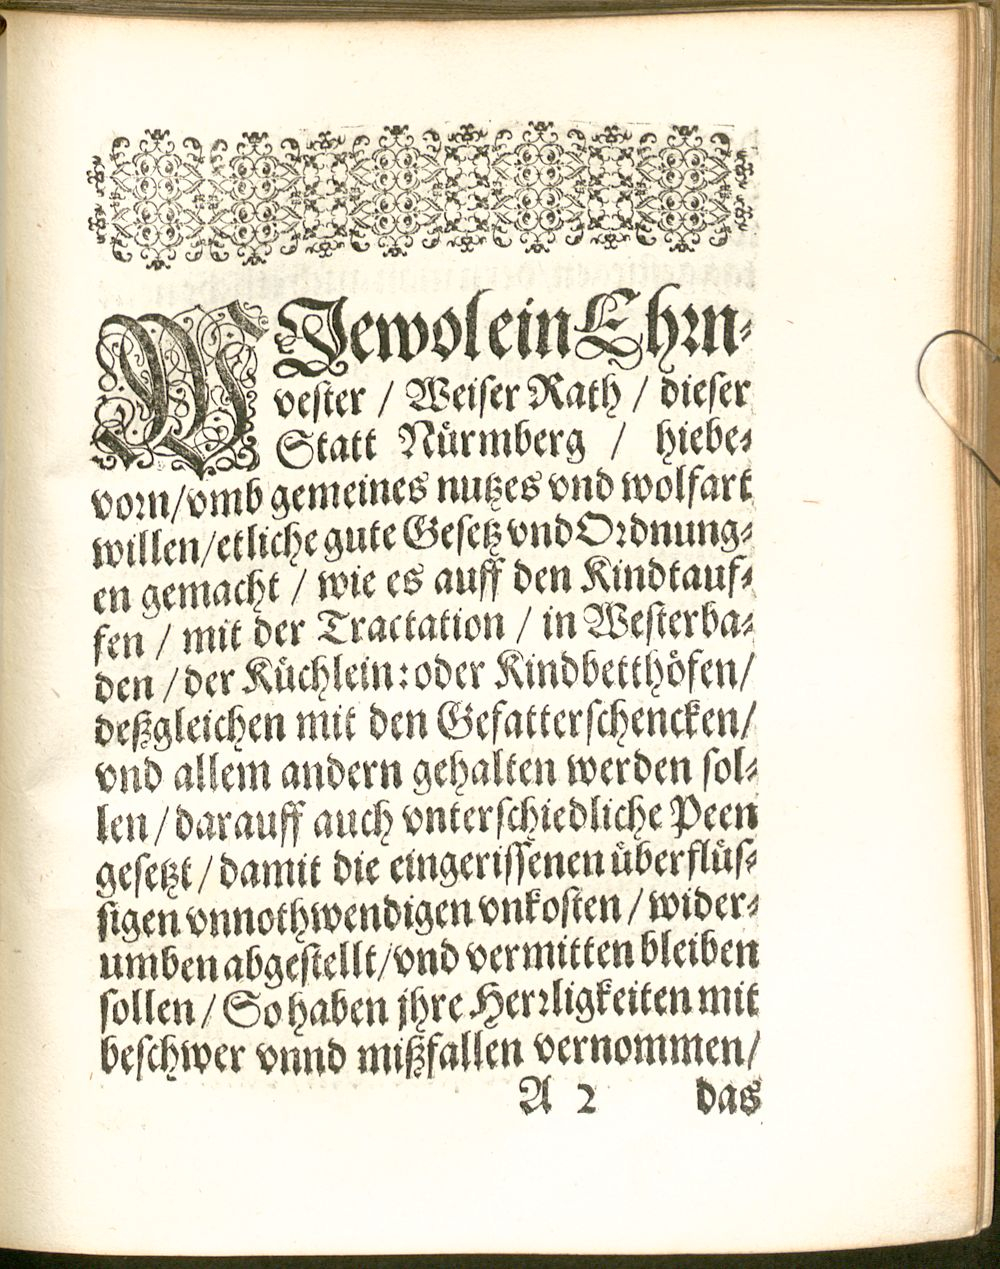 WJewol ein Ehrn⸗
vester / Weiser Rath / dieser
Statt Nürmberg / hiebe⸗
vorn/vmb gemeines nutzes vnd wolfart
willen/etliche gute Gesetz vnd Ordnung⸗
en gemacht / wie es auff den Kindtauf⸗
fen / mit der Tractation / in Westerba⸗
den / der Küchlein: oder Kindbetthöfen/
deßgleichen mit den Gefatterschencken/
vnd allem andern gehalten werden sol⸗
len / darauff auch vnterschiedliche Peen
gesetzt / damit die eingerissenen überflüs⸗
sigen vnnothwendigen vnkosten / wider⸗
umben abgestellt/vnd vermitten bleiben
sollen / So haben jhre Herrligkeiten mit
beschwer vnnd mißfallen vernommen/
A 2 das